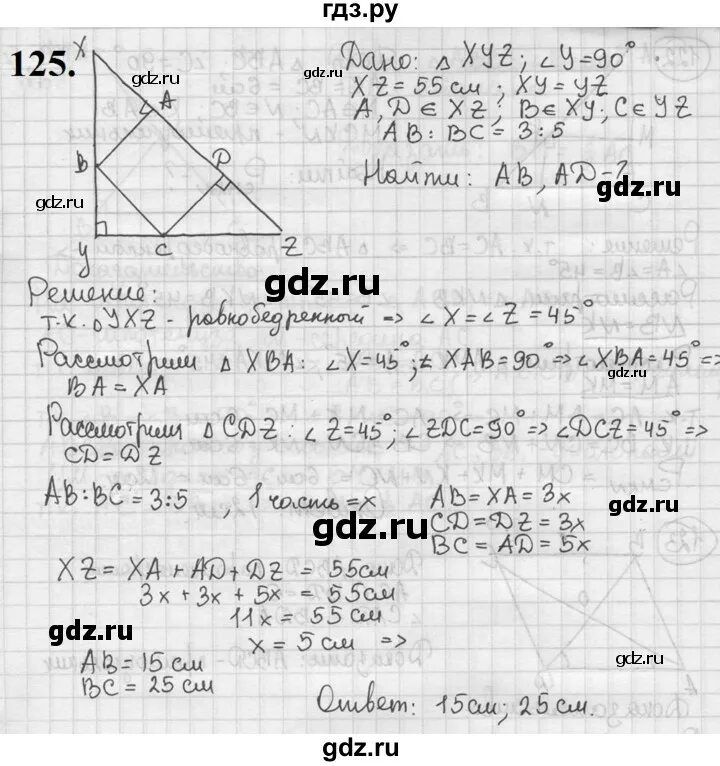 гдз.ру
125.
Дано: △ XYZ; ∠Y=90°.
XZ=55 см; XY=YZ
A, D ∈ XZ; B ∈ XY; C ∈ YZ
AB : BC = 3:5
Найти: AB, AD-?
X
A
B
D
Y
C
Z
gdz.ru
gdz.ru
gdz.ru
gdz.ru
gdz.ru
gdz.ru
Решение:
т.к. △YXZ - равнобедренный => ∠X=∠Z=45°
Рассмотрим △ XBA: ∠X=45°; ∠XAB=90° => ∠XBA=45° =>
BA = XA
gdz.ru
Рассмотрим △ CDZ: ∠Z=45°; ∠ZDC=90° => ∠DCZ=45° =>
CD=DZ
gdz.ru
AB:BC=3:5, 1 часть=x
AB=XA=3x
CD=DZ=3x
BC=AD=5x
gdz.ru
XZ = XA+AD+DZ = 55см
3x+3x+5x = 55см
11x = 55 см
x = 5 см =>
gdz.ru
gdz.ru
AB = 15 см
BC = 25 см
gdz.ru
Ответ: 15см; 25 см.
gdz.ru